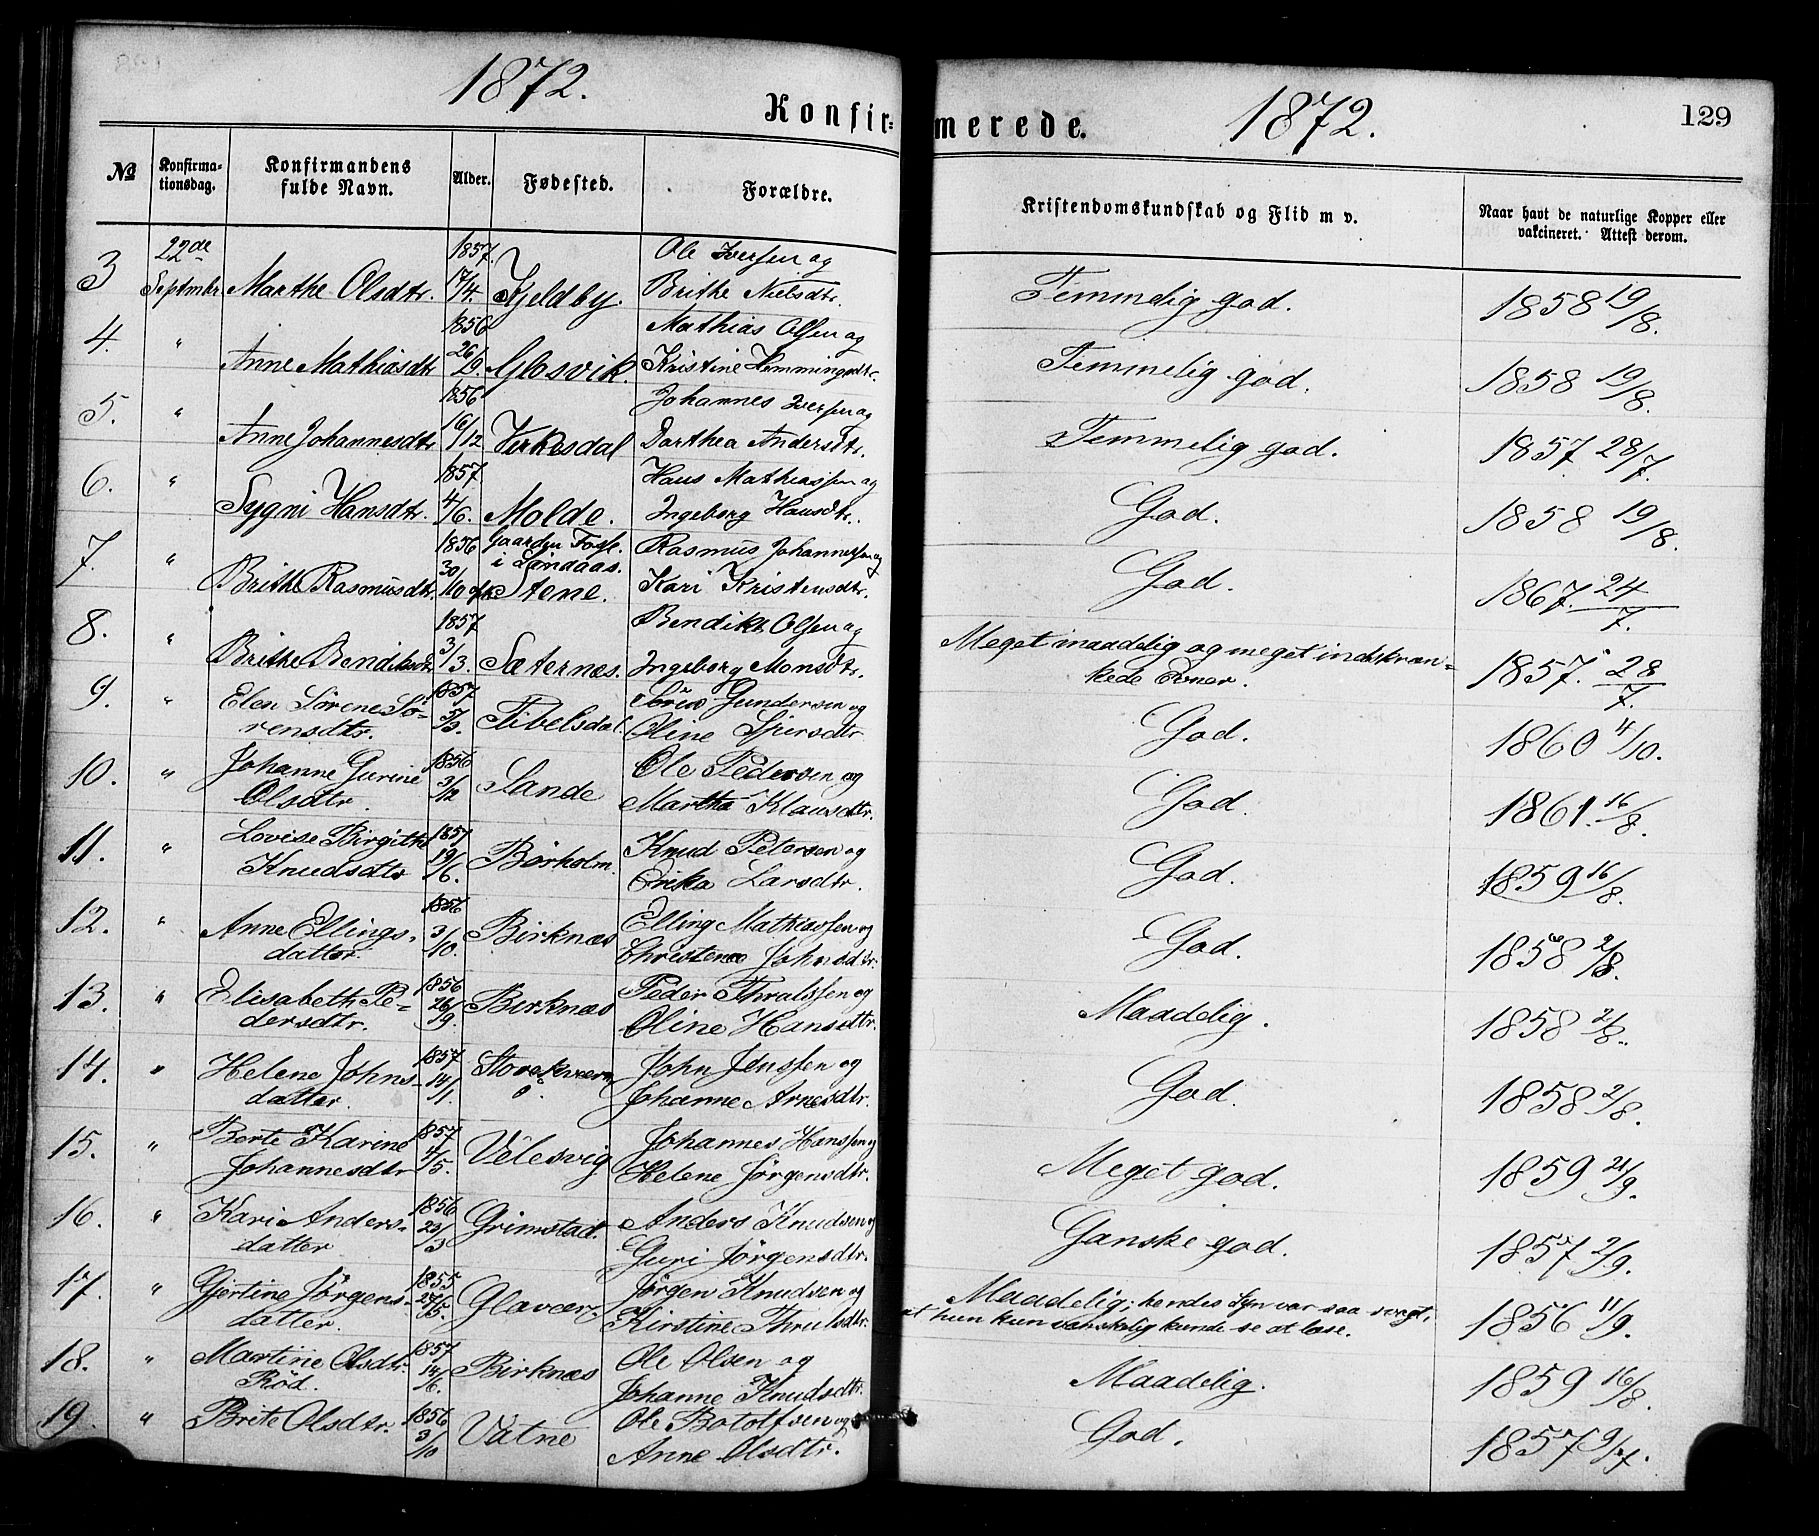 1872.
Konfir-
merede.
1872.
129
№
Konfirma-
tionsdag.
Konfirmandens
fulde Navn.
Alder.
Fødested.
Forældre.
Kristendomskundskab og Flid m v.
Naar havt de naturlige Kopper eller
vakcineret. Attest derom.
3 22de Septmbr. Marthe Olsdtr. 1857. 17/4. Kjeldby. Ole Iversen og Brithe Nielsdtr. Temmelig god. 1858 19/8.
4. " Anne Mathiasdtr 1856 26/9. Glosvik. Mathias Olsen og Kristine Hemmingsdtr. Temmelig god. 1858 19/8.
5. " Anne Johannesdtr. 1856 16/12 Virkesdal Johannes Iversen og Dorthea Andersdtr. Temmelig god. 1857. 28/7.
6. " Sygni Hansdtr. 1857. 4/6. Molde. Hans Mathiassen og Ingeborg Hansdtr. God. 1858 19/8.
7. " Brithe Rasmusdtr. 1856 30/10 gaarden Fosse. i Lindaas. Stene. Rasmus Johannessen og Kari Kristensdtr. God. 1867. 24/7.
8. " Brithe Bendiksdtr 1857 3/3. Sæternæs. Bendikt Olsen og Ingeborg Monsdtr. Meget maadelig og meget indskræn-
kede Evner. 1857. 28/7.
9. " Elen Sørene Sø-
rensdtr. 1857. 5/3. Tibelsdal. Sören Gundersen og Oline Sjursdtr God. 1860 4/10.
10. " Johanne Gurine
Olsdtr. 1856 3/12 Sande Ole Pedersen og Martha Klausdtr. God. 1861. 16/8.
11. " Lovise Birgithe
Knudsdtr 1857 19/6. Børholm. Knud Petersen og Erika Larsdtr. God. 1859 16/8.
12. " Anne Ellings-
datter. 1856 3/10. Birknæs Elling Mathiassen og Christence Johnsdtr. God. 1858 2/8.
13. " Elisabeth Pe-
dersdtr. 1856 26/9. Birknæs Peder Thralssen og Oline Hansdtr. Maadelig. 1858 2/8.
14. " Helene Johns-
datter. 1857 14/1. Storekværn
ö. John Jenssen og Johanne Arnesdtr. God. 1858 2/8.
15. " Berte Karine
Johannesdtr 1857 4/5. Vilesvig Johannes Hanssen og Helene Jørgensdtr. Meget god. 1859 21/9.
16. " Kari Anders-
datter 1856 23/3 Grimstad. Anders Knudsen og Guri Jørgensdtr. Ganske god. 1857 2/9.
17. " Gjertine Jørgens-
datter. 1855 27/5. Glavær. Jørgen Knudsen og Kirstine Thrulsdtr. Maadelig; hendes Syn var saa svagt,
at hun kun vanskelig kunde se at læse. 1856 11/9.
18. " Martine Olsdtr.
Röd. 1857 14/6. Birknæs Ole Olsen og Johanne Knudsdtr. Maadelig. 1859 16/8.
19. " Brite Olsdtr. 1856 3/10 Vatne Ole Botolfsen og Anne Olsdtr. God. 1857 9/7.